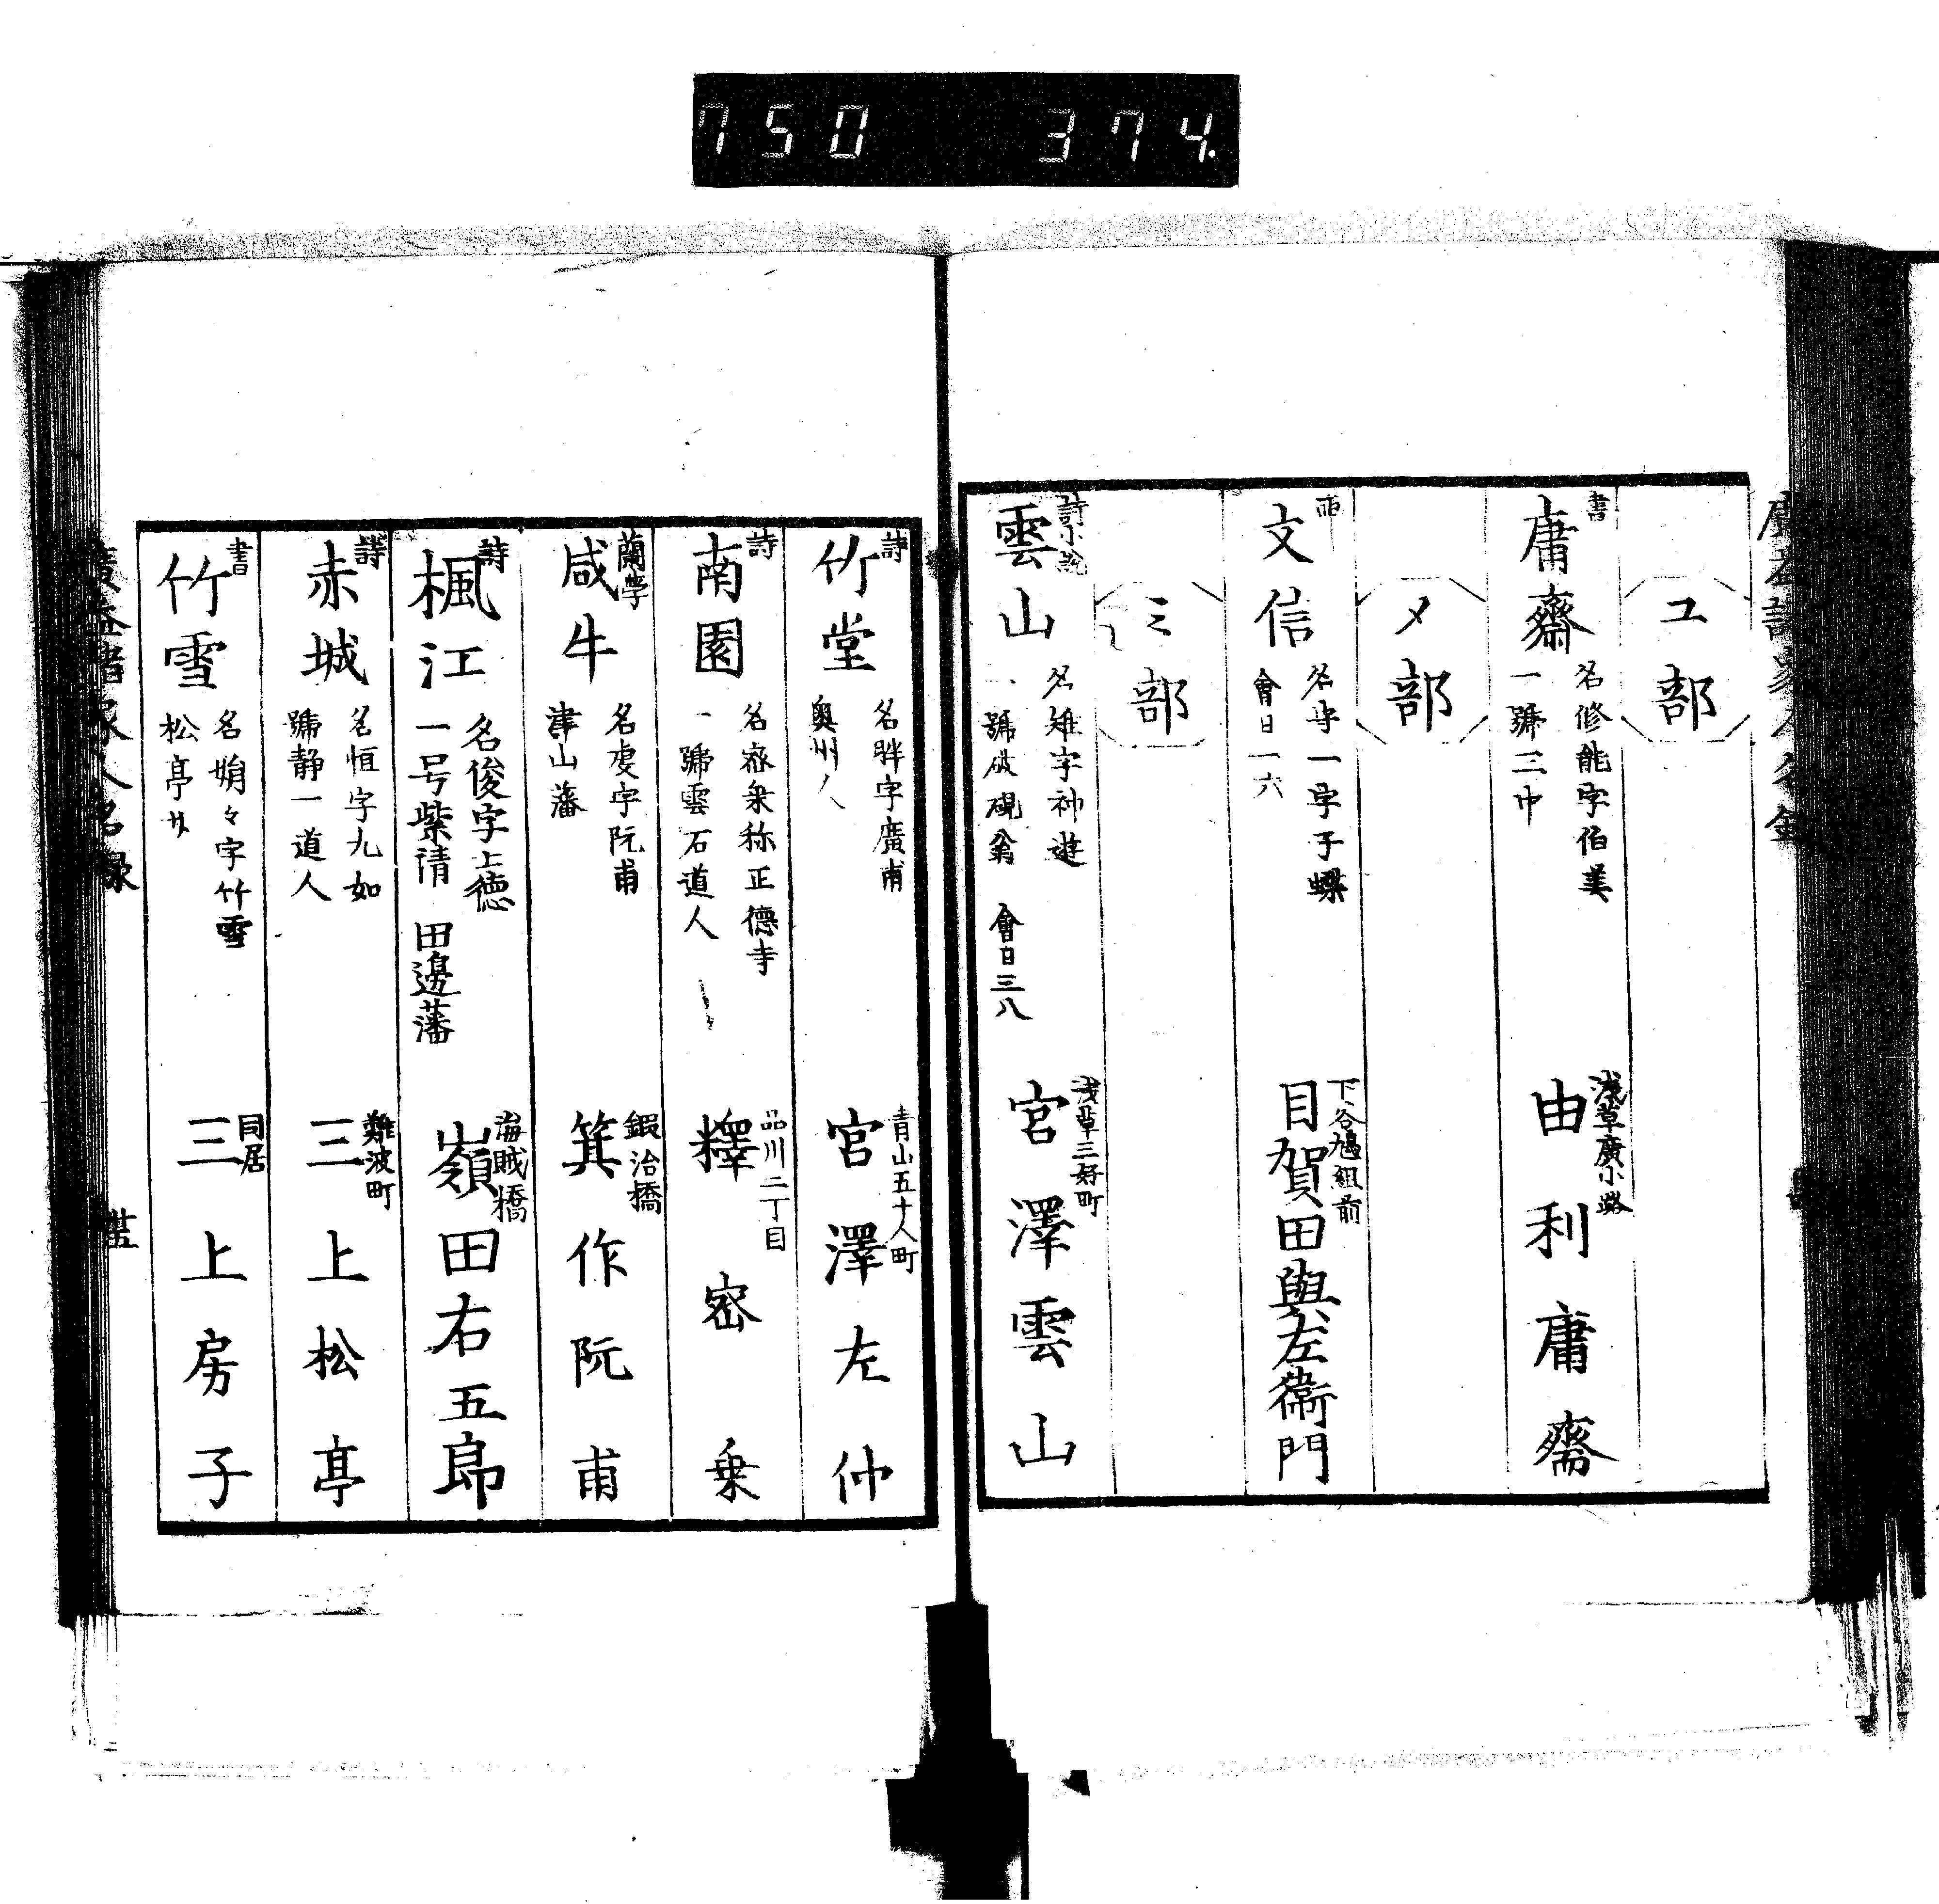 750 374.
ユ部
書
庸齋
名修能字伯美
一號三中
淺草廣小路
由利庸齋
メ部
画
文信
名守一字子蝶
會日一六
下谷鳩組前
目賀田與左衞門
ミ部
詩小說
雲山
名雉字神遊
一號破硯翁 會日三八
浅草三好町
宮澤雲山
詩
竹堂
名胖字廣甫
奥州人
青山五十人町
宮澤左仲
詩
南園
名密乗称正德寺
一號雲石道人
品川二丁目
釋密乗
蘭學
咸牛
名虔字阮甫
津山藩
鍜冶橋
箕作阮甫
詩
楓江
名俊字士德
一号紫清 田邊藩
海賊橋
嶺田右五郎
詩
赤城
名恒字九如
號静一道人
難波町
三上松亭
書
竹雪
名娟々字竹雪
松亭女
同居
三上房子
廣益諸家人名録